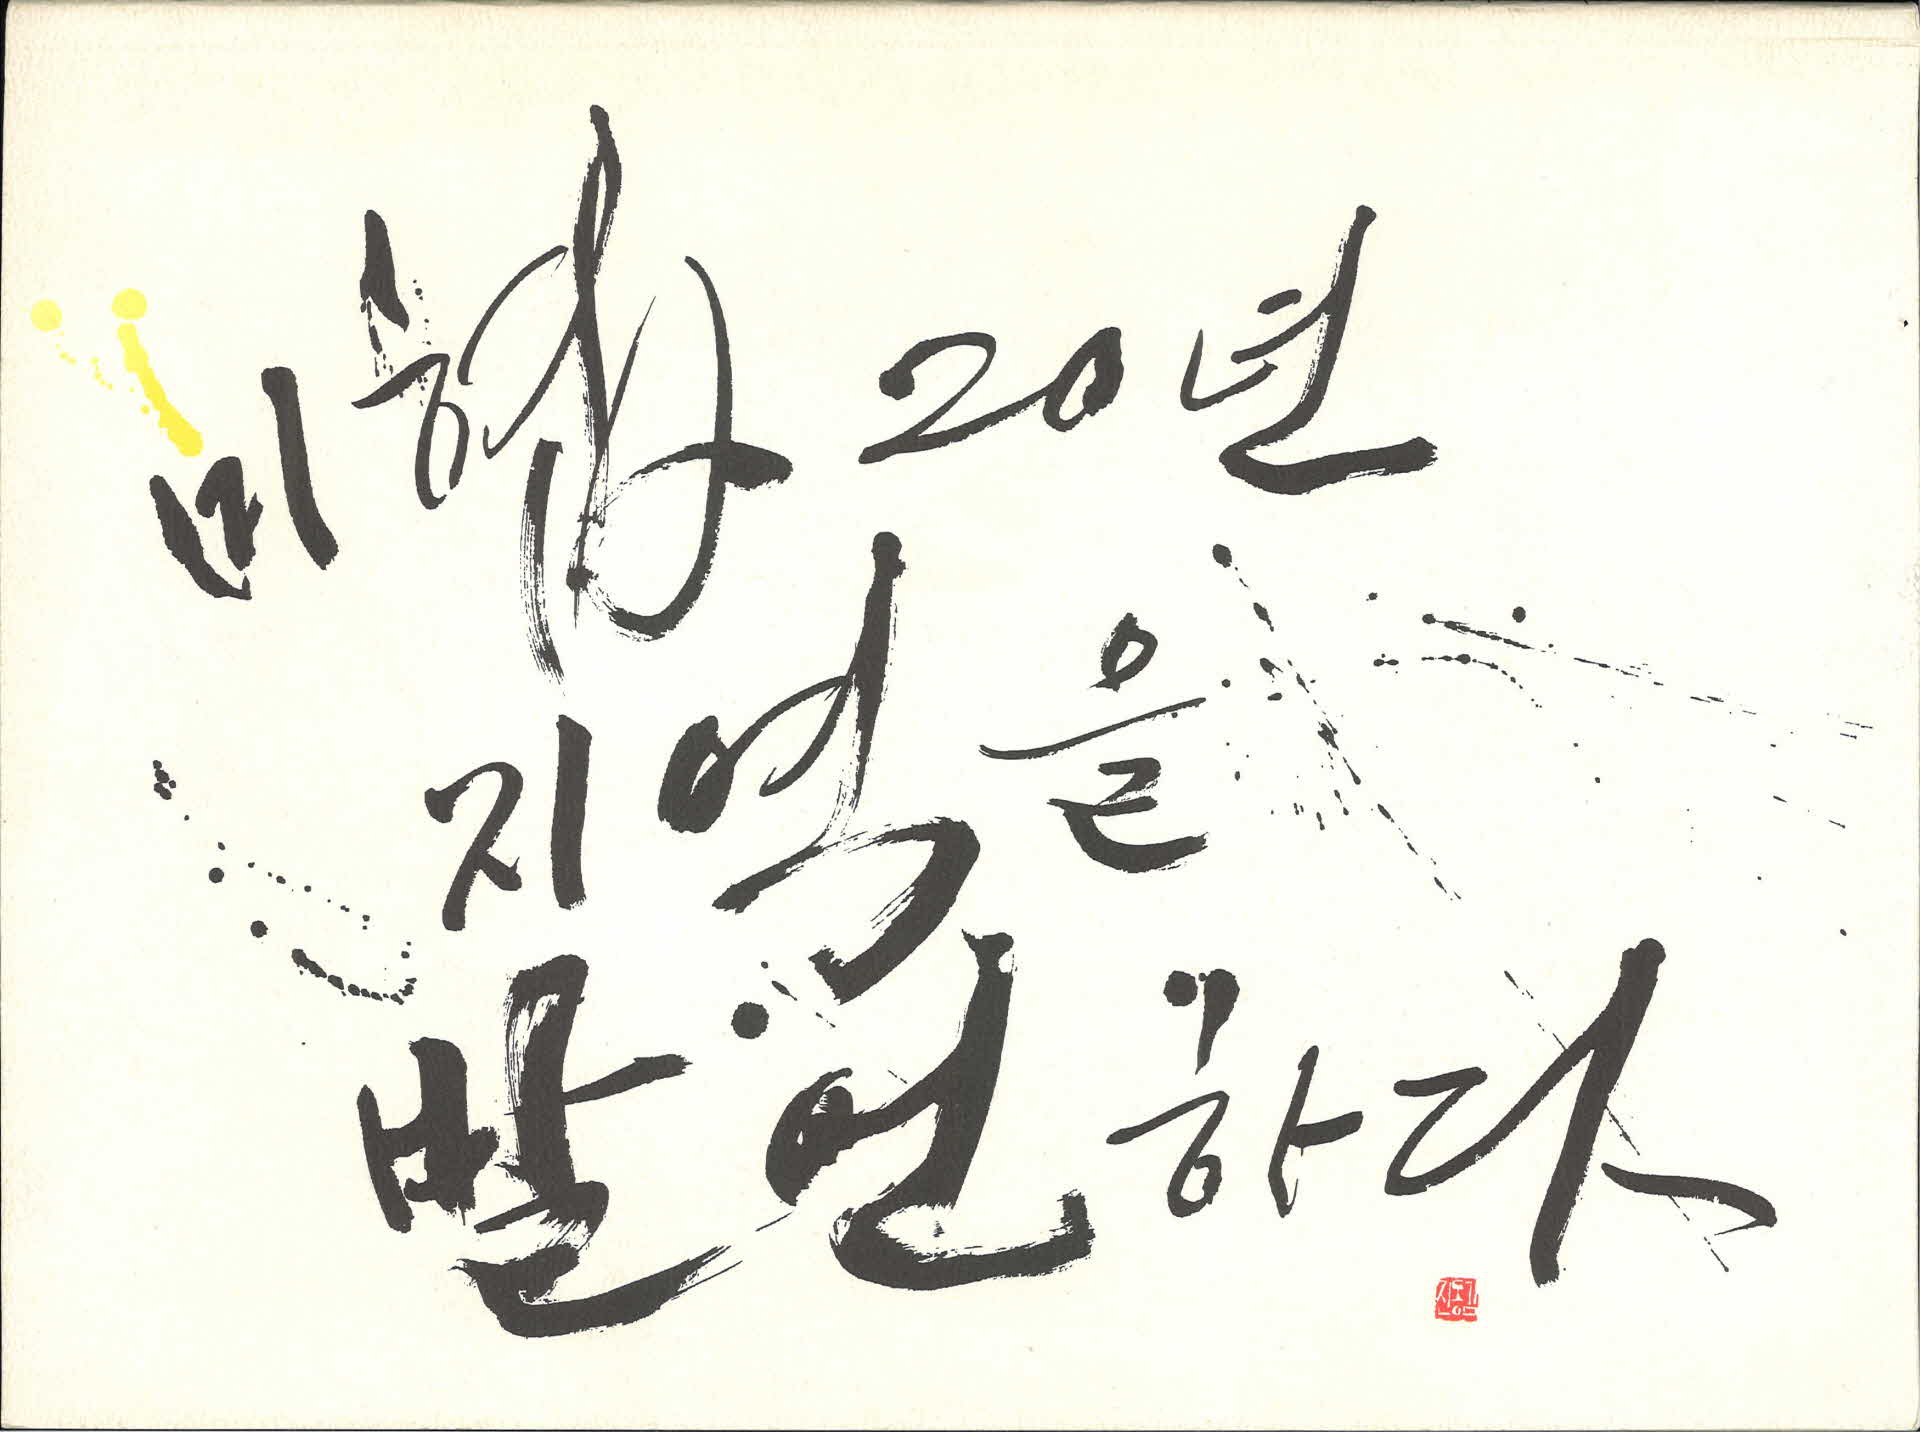 미협 20년
지역을
발언하다